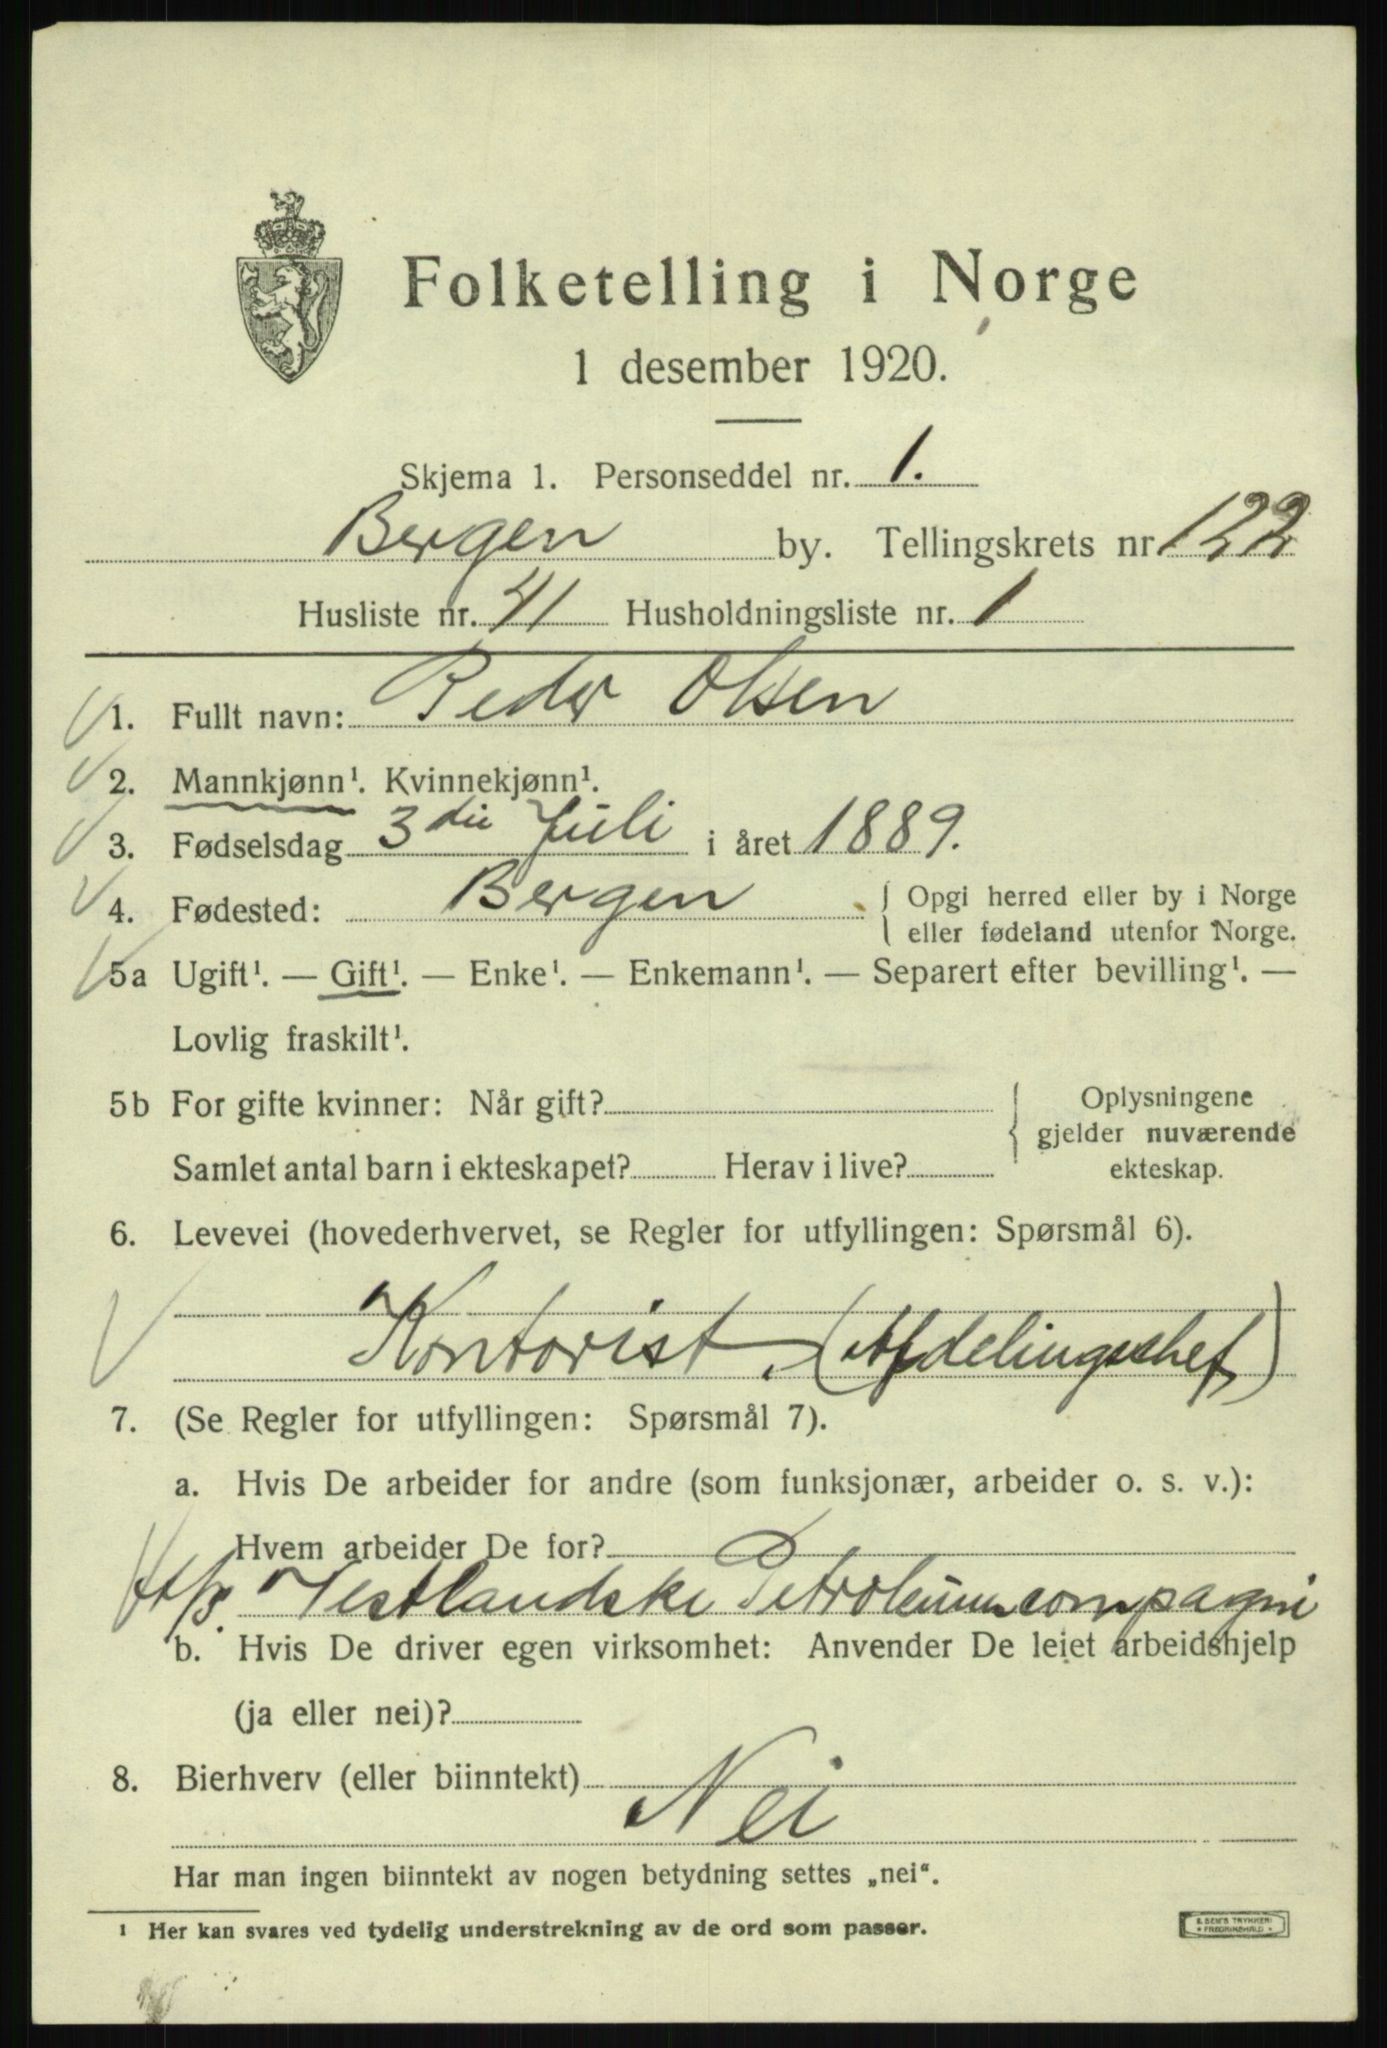 Folketelling i Norge
1 desember 1920.
Skjema 1. Personseddel nr. 1.
Bergen by. Tellingskrets nr 122
Husliste nr. 41 Husholdningsliste nr. 1
1. Fullt navn: Peder Olsen
2. Mannkjønn¹. Kvinnekjønn¹.
3. Fødselsdag 3die Juli i året 1889.
4. Fødested: Bergen { Opgi herred eller by i Norge
eller fødeland utenfor Norge.
5a Ugift¹. — Gift¹. — Enke¹. — Enkemann¹. — Separert efter bevilling¹. —
Lovlig fraskilt¹.
5b For gifte kvinner: Når gift? { Oplysningene
gjelder nuværende
Samlet antal barn i ekteskapet? Herav i live? ekteskap.
6. Levevei (hovederhvervet, se Regler for utfyllingen: Spørsmål 6).
Kontorist. (Afdelingschef)
7. (Se Regler for utfyllingen: Spørsmål 7).
a. Hvis De arbeider for andre (som funksjonær, arbeider o. s. v.):
Hvem arbeider De for?
Vestlandske Petroleumcompagni
b. Hvis De driver egen virksomhet: Anvender De leiet arbeidshjelp
(ja eller nei)?
8. Bierhverv (eller biinntekt)
Nei
Har man ingen biinntekt av nogen betydning settes „nei“.
¹ Her kan svares ved tydelig understrekning av de ord som passer.
E. SEM'S TRYKKERI
* FREDRIKSHALD *